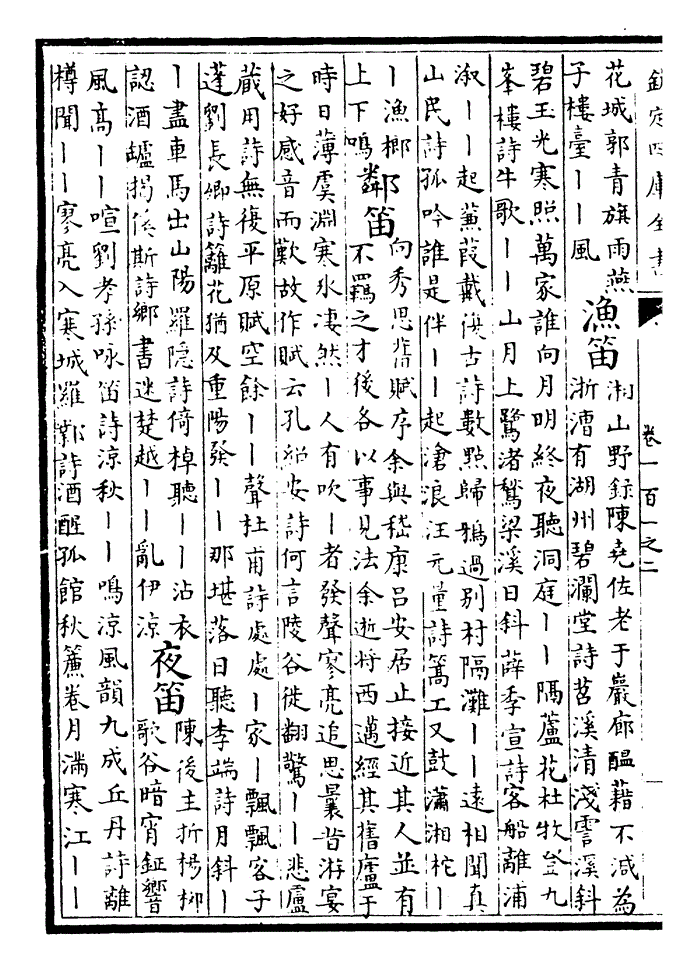 欽定四庫全書
卷一百一之二
花城郭青旗雨燕
子樓臺丨丨風
漁笛
湘山野錄陳堯佐老于巖廊醖藉不減為
浙漕有湖州碧瀾堂詩苕溪清淺霅溪斜
碧玉光寒照萬家誰向月明終夜聽洞庭丨丨隔蘆花杜牧登九
峯樓詩牛歌丨丨山月上鷺渚鶖梁溪日斜薛季宣詩客船離浦
溆丨丨起蒹葭戴復古詩數點歸鴉過别村隔灘丨丨遠相聞真
山民詩孤吟誰是伴丨丨起滄浪汪元量詩篙工又鼓瀟湘柁丨
丨漁榔
上下鳴
鄰笛
向秀思舊賦序余與嵇康呂安居止接近其人並有
不羈之才後各以事見法余逝將西邁經其舊廬于
時日薄虞淵寒氷凄然丨人有吹丨者發聲寥亮追思曩昔游宴
之好感音而歎故作賦云孔紹安詩何言陵谷徙翻驚丨丨悲盧
蔵用詩無復平原賦空餘丨丨聲杜甫詩處處丨家丨飄飄客子
蓬劉長卿詩籬花猶及重陽發丨丨那堪落日聽李端詩月斜丨
丨盡車馬出山陽羅隱詩倚棹聽丨丨沾衣
認酒罏揭傒斯詩鄉書迷楚越丨丨亂伊涼
夜笛
陳後主折楊柳
歌谷暗宵鉦響
風高丨丨喧劉孝孫咏笛詩涼秋丨丨鳴涼風韻九成丘丹詩離
樽聞丨丨寥亮入寒城羅鄴詩酒醒孤館秋簾卷月滿寒江丨丨